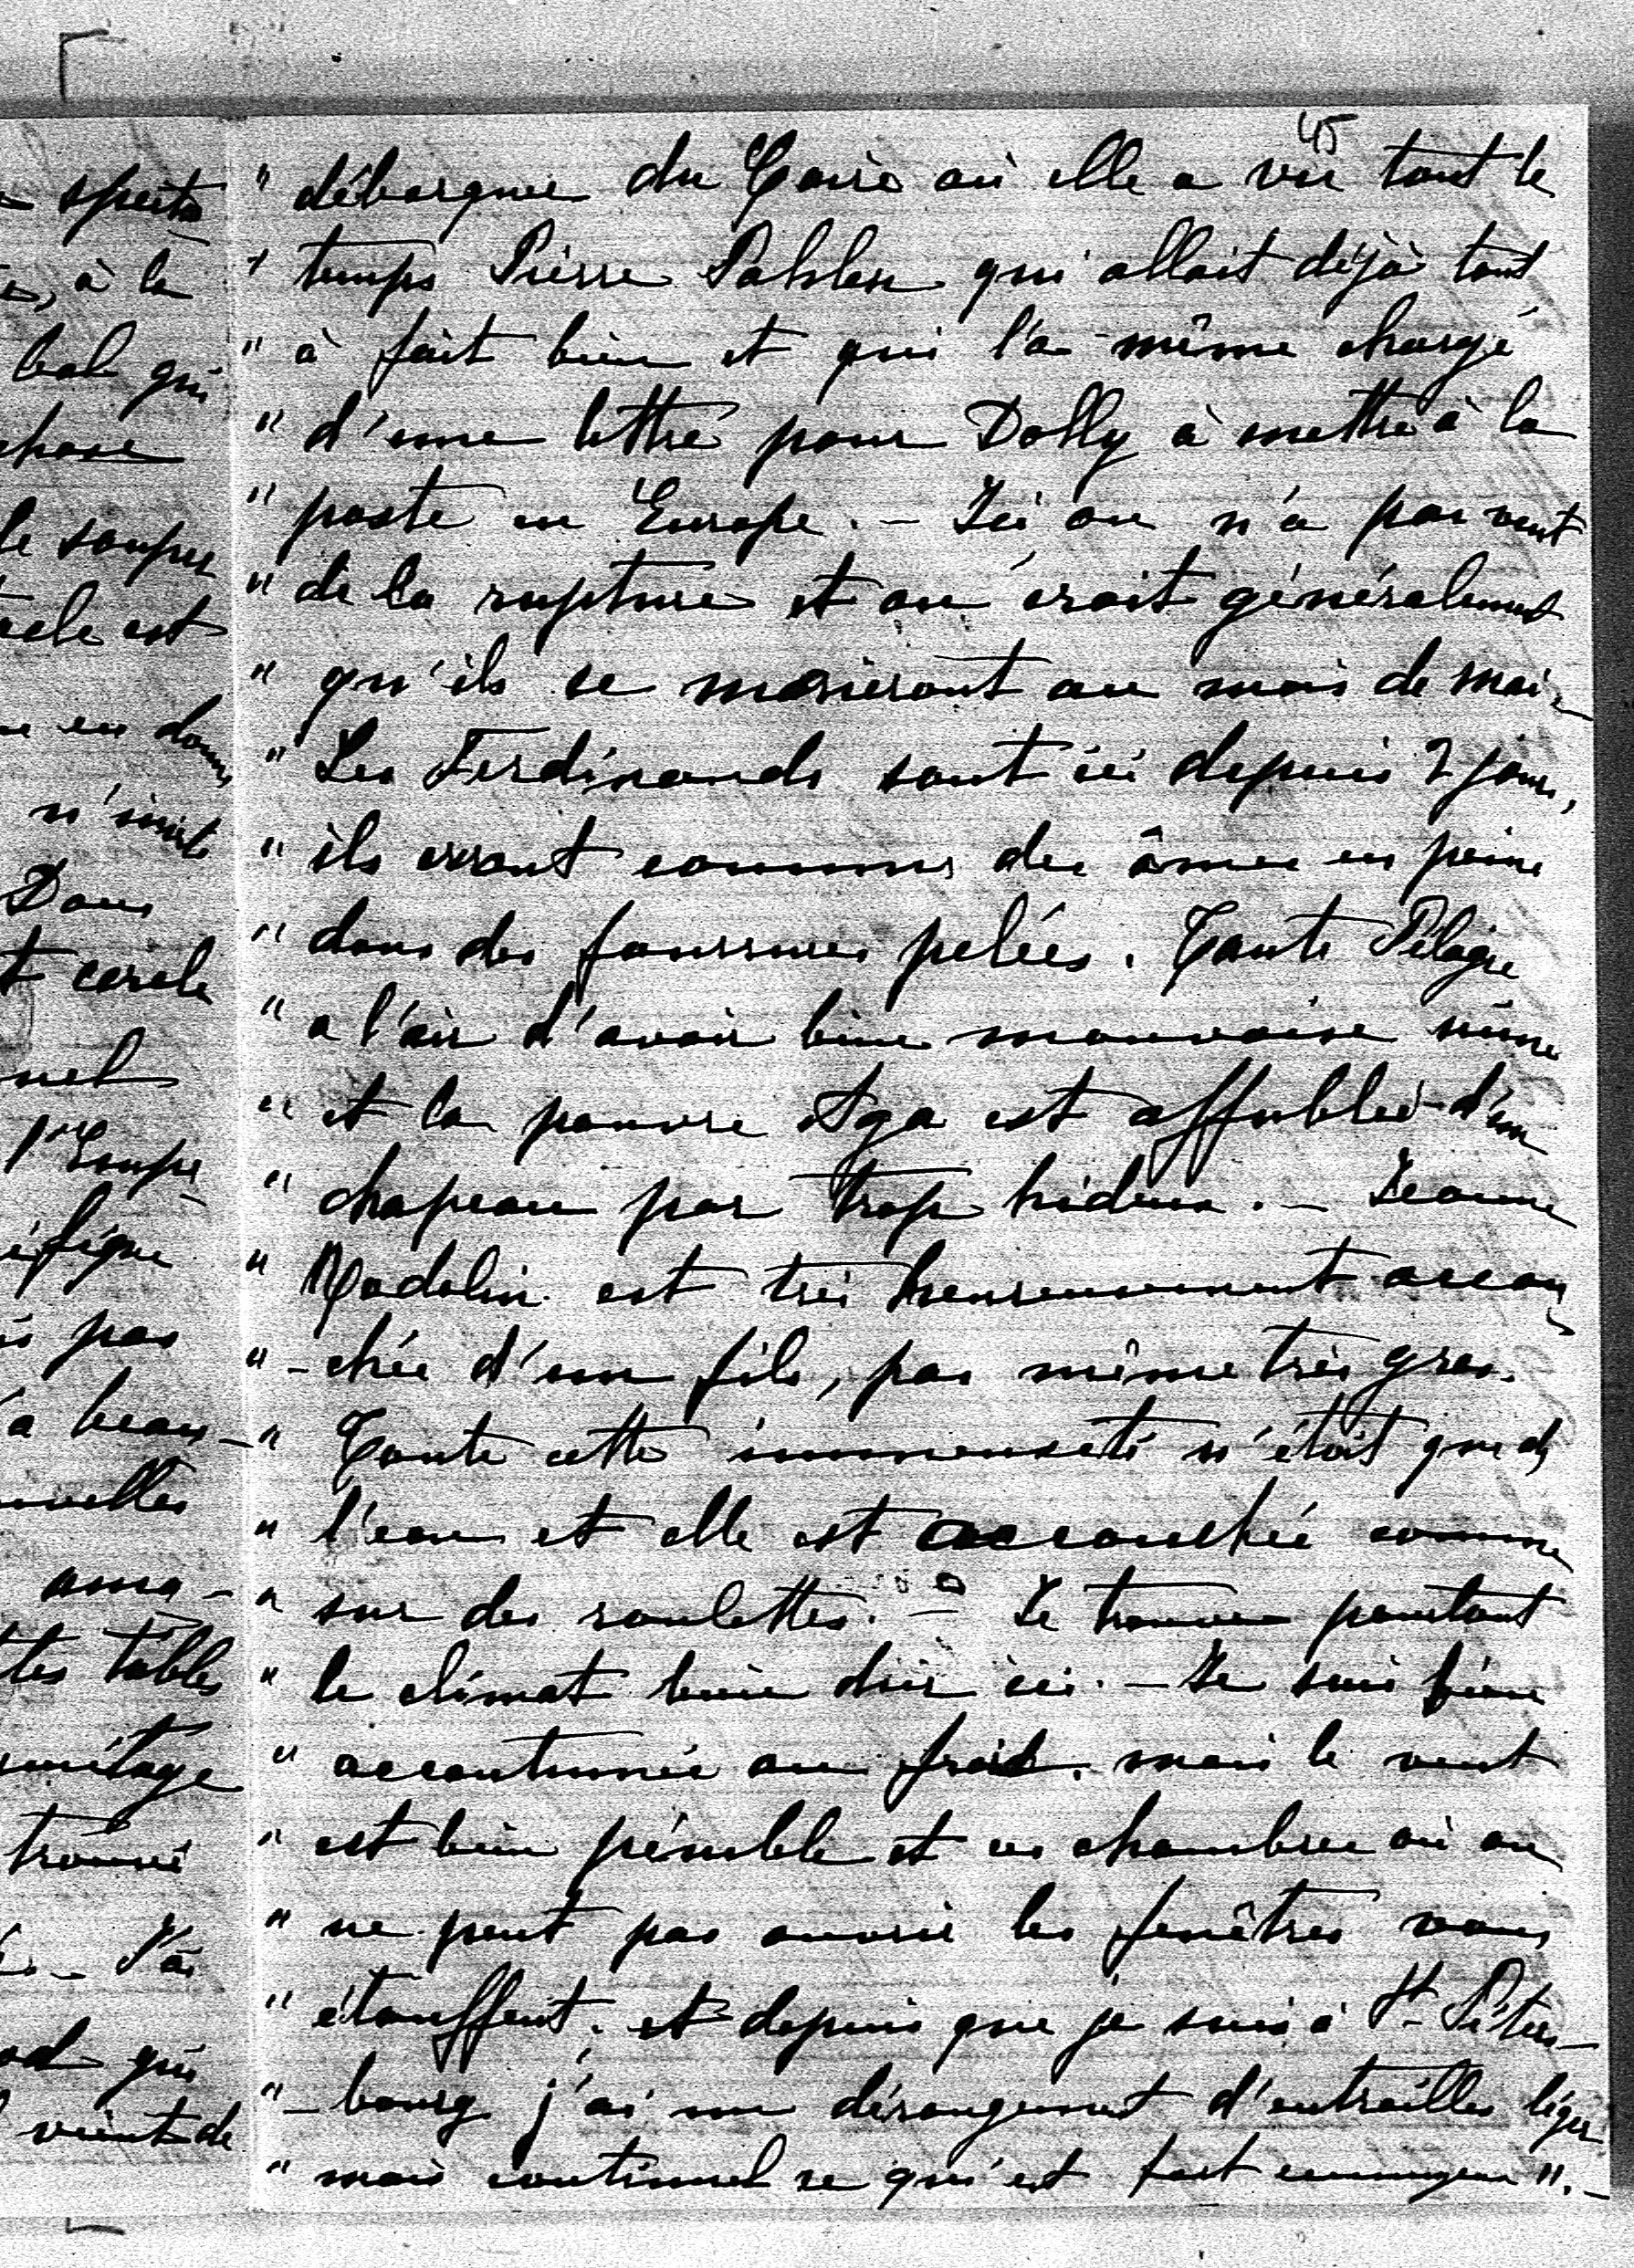 45
" débarquer du Caire où elle a vu tout le
" temps Pierre Pahlen qui allait déjà tout
" à fait bien et qui l'a même chargé
" d'une lettre pour Dolly à mettre à la
" poste en Europe. – Ici on n'a pas vent
" de la rupture et on croit généralement
" qu'ils se marieront au mois de mai –
" Les Ferdinands sont ici depuis 2 jours,
" ils errent comme des âmes en peine
" dans des fourrures pelées. Tante Pélagie
" a l'air d'avoir bien mauvaise mine
" et la pauvre Aga est affublée d'un
" chapeau par trop hideux. – Jeanne
" est très heureusement accou
" – chée d'un fils, pas même très gros.
" Toute cette immensité n'était que de
" l'eau et elle est accouchée comme
" sur des roulettes. – Je trouve pourtant
" le climat bien dur ici. – Je suis bien
" accoutumée au froid, mais le vent
" est bien pénible et ces chambres où on
" ne peut pas ouvrir les fenêtres vous
" étouffent, et depuis que je suis à St. Péters –
" – bourg j'ai un dérangement d'entrailles léger
" mais continuel ce qui est fort ennuyeux ". –
spects
à la
bal qui
chose
le souper
cle est
en donne
n'invite
Dans
t cercle
nel
ifique
s pas
a beau –
ouvelles
tes tables
trouvé
J'ai
qui
vient de